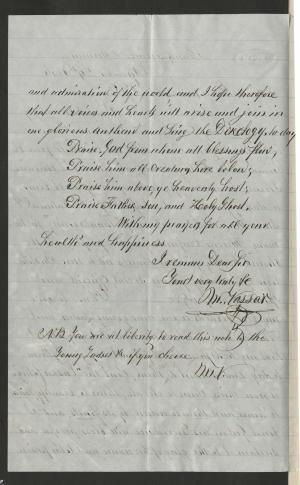 and admiration of the world and I hope therefore
that all voices and hearts will arise and join in
one glorious anthem and sing the Doxology to day
Praise God from whom all blessings flow,
Praise him all Creatures here below;
Praise him above ye heavenly host,
Praise Father, Son, and Holy Ghost.
With my prayers for all your
health and happiness
I remain Dear Sir
Yours very truly &c
M. Vassar
NB You are at liberty to read this note to the
Young Ladies &c if you choose
M.V.